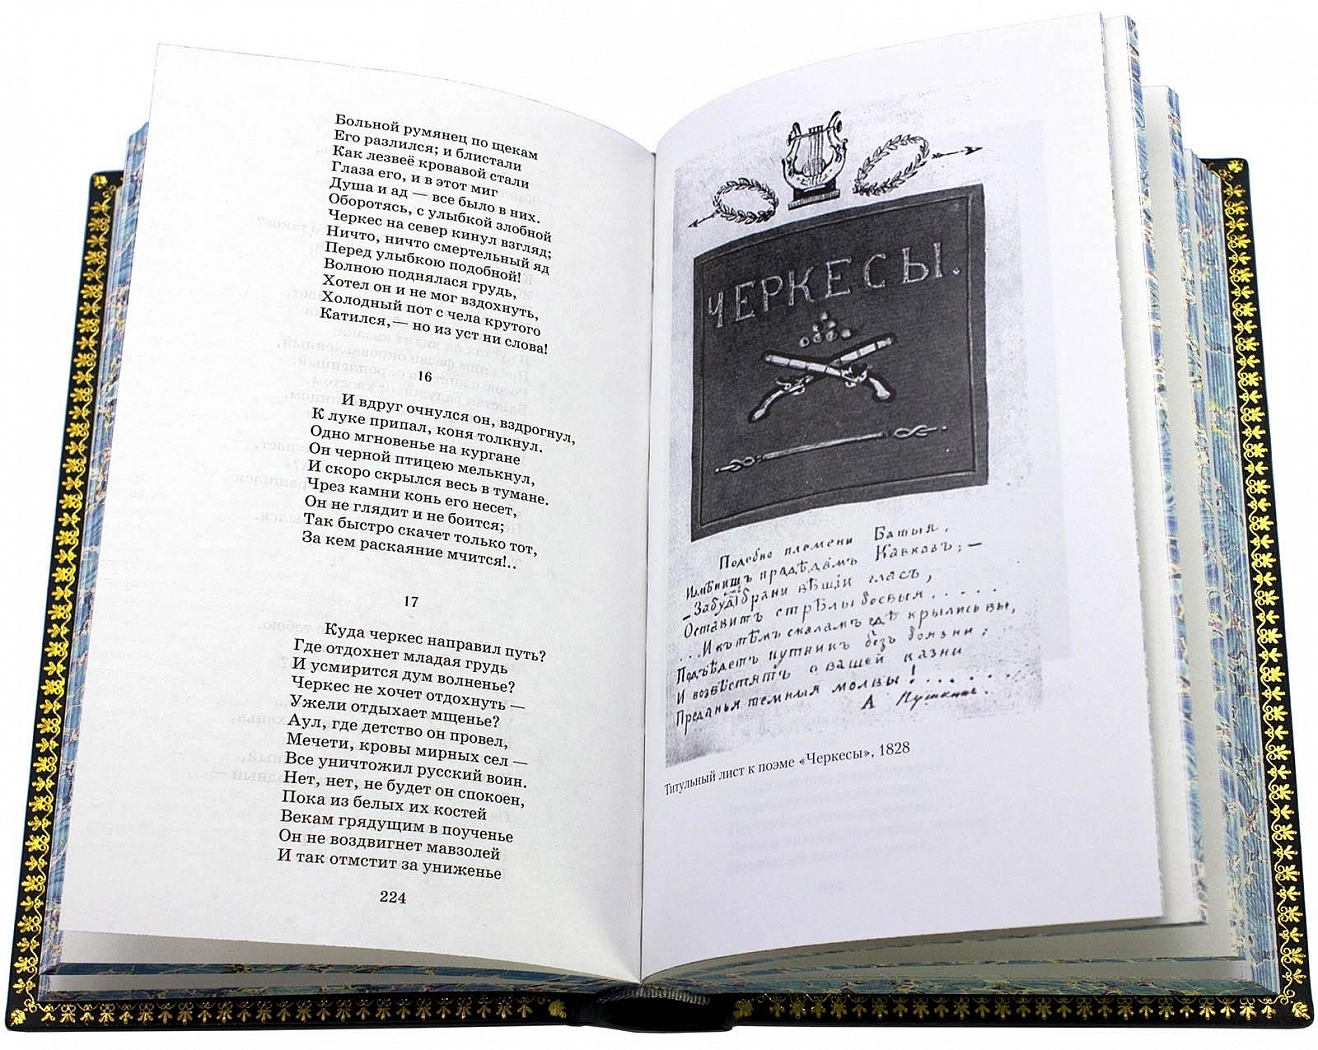 Больной румянец по щекам
Его разлился; и блистали
Как лезвеё кровавой стали
Глаза его, и в этот миг
Душа и ад — все было в них.
Оборотясь, с улыбкой злобной
Черкес на север кинул взгляд;
Ничто, ничто смертельный яд
Перед улыбкою подобной!
Волною поднялася грудь,
Хотел он и не мог вздохнуть,
Холодный пот с чела крутого
Катился,— но из уст ни слова!
16
И вдруг очнулся он, вздрогнул,
К луке припал, коня толкнул.
Одно мгновенье на кургане
Он черной птицею мелькнул,
И скоро скрылся весь в тумане.
Чрез камни конь его несет,
Он не глядит и не боится;
Так быстро скачет только тот,
За кем раскаяние мчится!..
17
Куда черкес направил путь?
Где отдохнет младая грудь
И усмирится дум волненье?
Черкес не хочет отдохнуть —
Ужели отдыхает мщенье?
Аул, где детство он провел,
Мечети, кровы мирных сел —
Все уничтожил русский воин.
Нет, нет, не будет он спокоен,
Пока из белых их костей
Векам грядущим в поученье
Он не воздвигнет мавзолей
И так отмстит за униженье
224
ЧЕРКЕСЫ.
Подобно племени Батыя,
Измѣнитъ прадѣдамъ Кавказъ; —
Забудетъ брани вѣщій гласъ,
Оставитъ стрѣлы боевыя.....
...И къ тѣмъ скаламъ гдѣ крылись вы,
Подъѣдетъ путникъ безъ боязни;
И возвѣстятъ о вашей казни
Преданья темныя молвы!......
А Пушкинъ.
Титульный лист к поэме «Черкесы», 1828